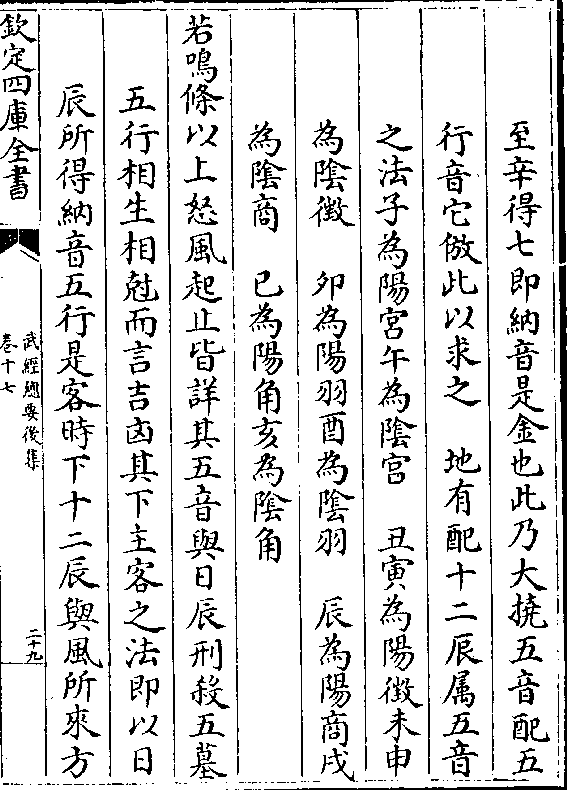 至辛得七即納音是金也此乃大撓五音配五
行音它倣此以求之　地有配十二辰属五音
之法子為陽宮午為陰宮　丑寅為陽徵未申
為陰徵　卯為陽羽酉為陰羽　辰為陽商戌
為陰商　巳為陽角亥為陰角
若鳴條以上怒風起止皆詳其五音與日辰刑殺五墓
五行相生相尅而言吉凶其下主客之法即以日
辰所得納音五行是客時下十二辰與風所來方
欽定四庫全書
武經總要後集
卷十七
二十九